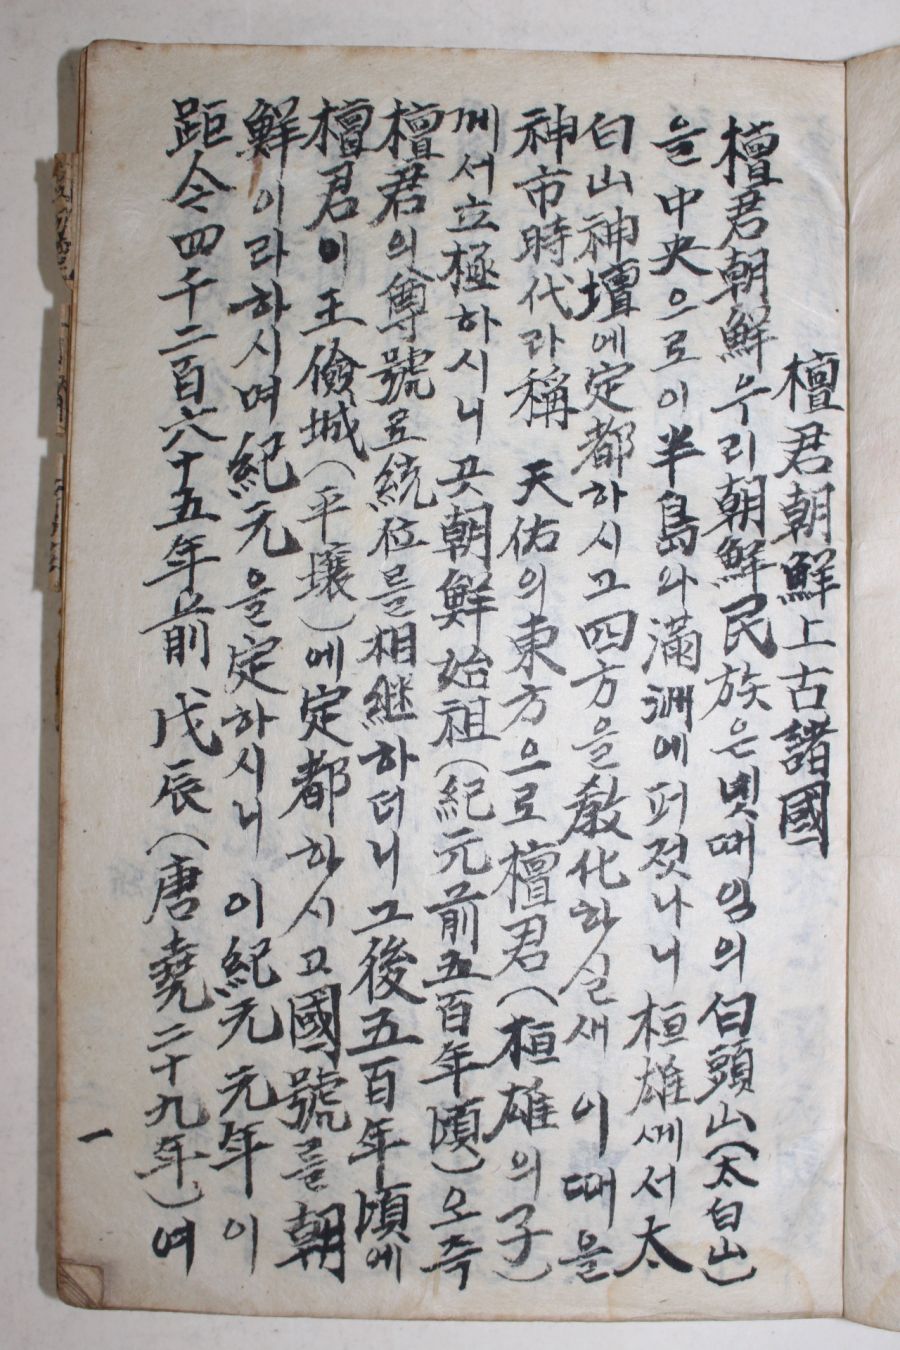 檀君朝鮮上古諸國
檀君朝鮮우리朝鮮民族은볏때임의白頭山(太白山)
을中央으로이半島와滿洲에퍼젓나니桓雄께서太
白山神壇에定都하시고四方을敎化하실새이때을
神市時代라稱 天佑의東方으로檀君(桓雄의子)
께서立極하시니끗朝鮮始祖(紀元前五百年頃)오즉
檀君의尊號로統位를相継하더니그後五百年頃에
檀君이王儉城(平壤)에定都하시고國號를朝
鮮이라하시며紀元을定하시니이紀元元年이
距今四千二百六十五年前戊辰(唐堯二十九年)여
一